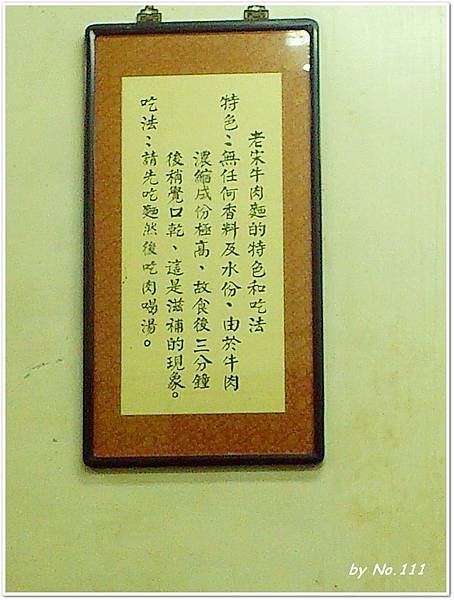 老宋牛肉麵的特色和吃法
特色：無任何香料及水份、由於牛肉
濃縮成份極高、故食後三分鐘
後稍覺口乾、這是滋補的現象。
吃法：請先吃麵然後吃肉喝湯。
by No.111